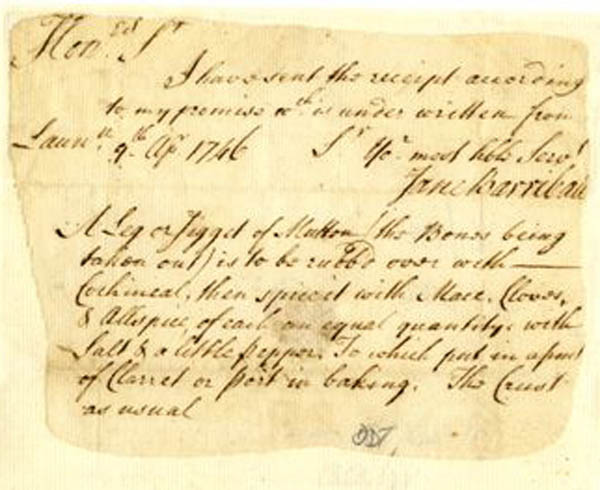 Hon.ed Sr
I have sent the receipt according
to my promise wch is under written from
Laun.n 9.th Apr. 1746 Sr Yor most hble Servt
Jane Barriball
A Leg or Jigget of Mutton (the Bones being
taken out) is to be rubb'd over with
Cochineal, then spice it with Mace, Cloves,
& Allspice, of each an equal quantity, with
Salt & a little Pepper. To which put in a pint
of Clarret or Port in baking. The Crust
as usual